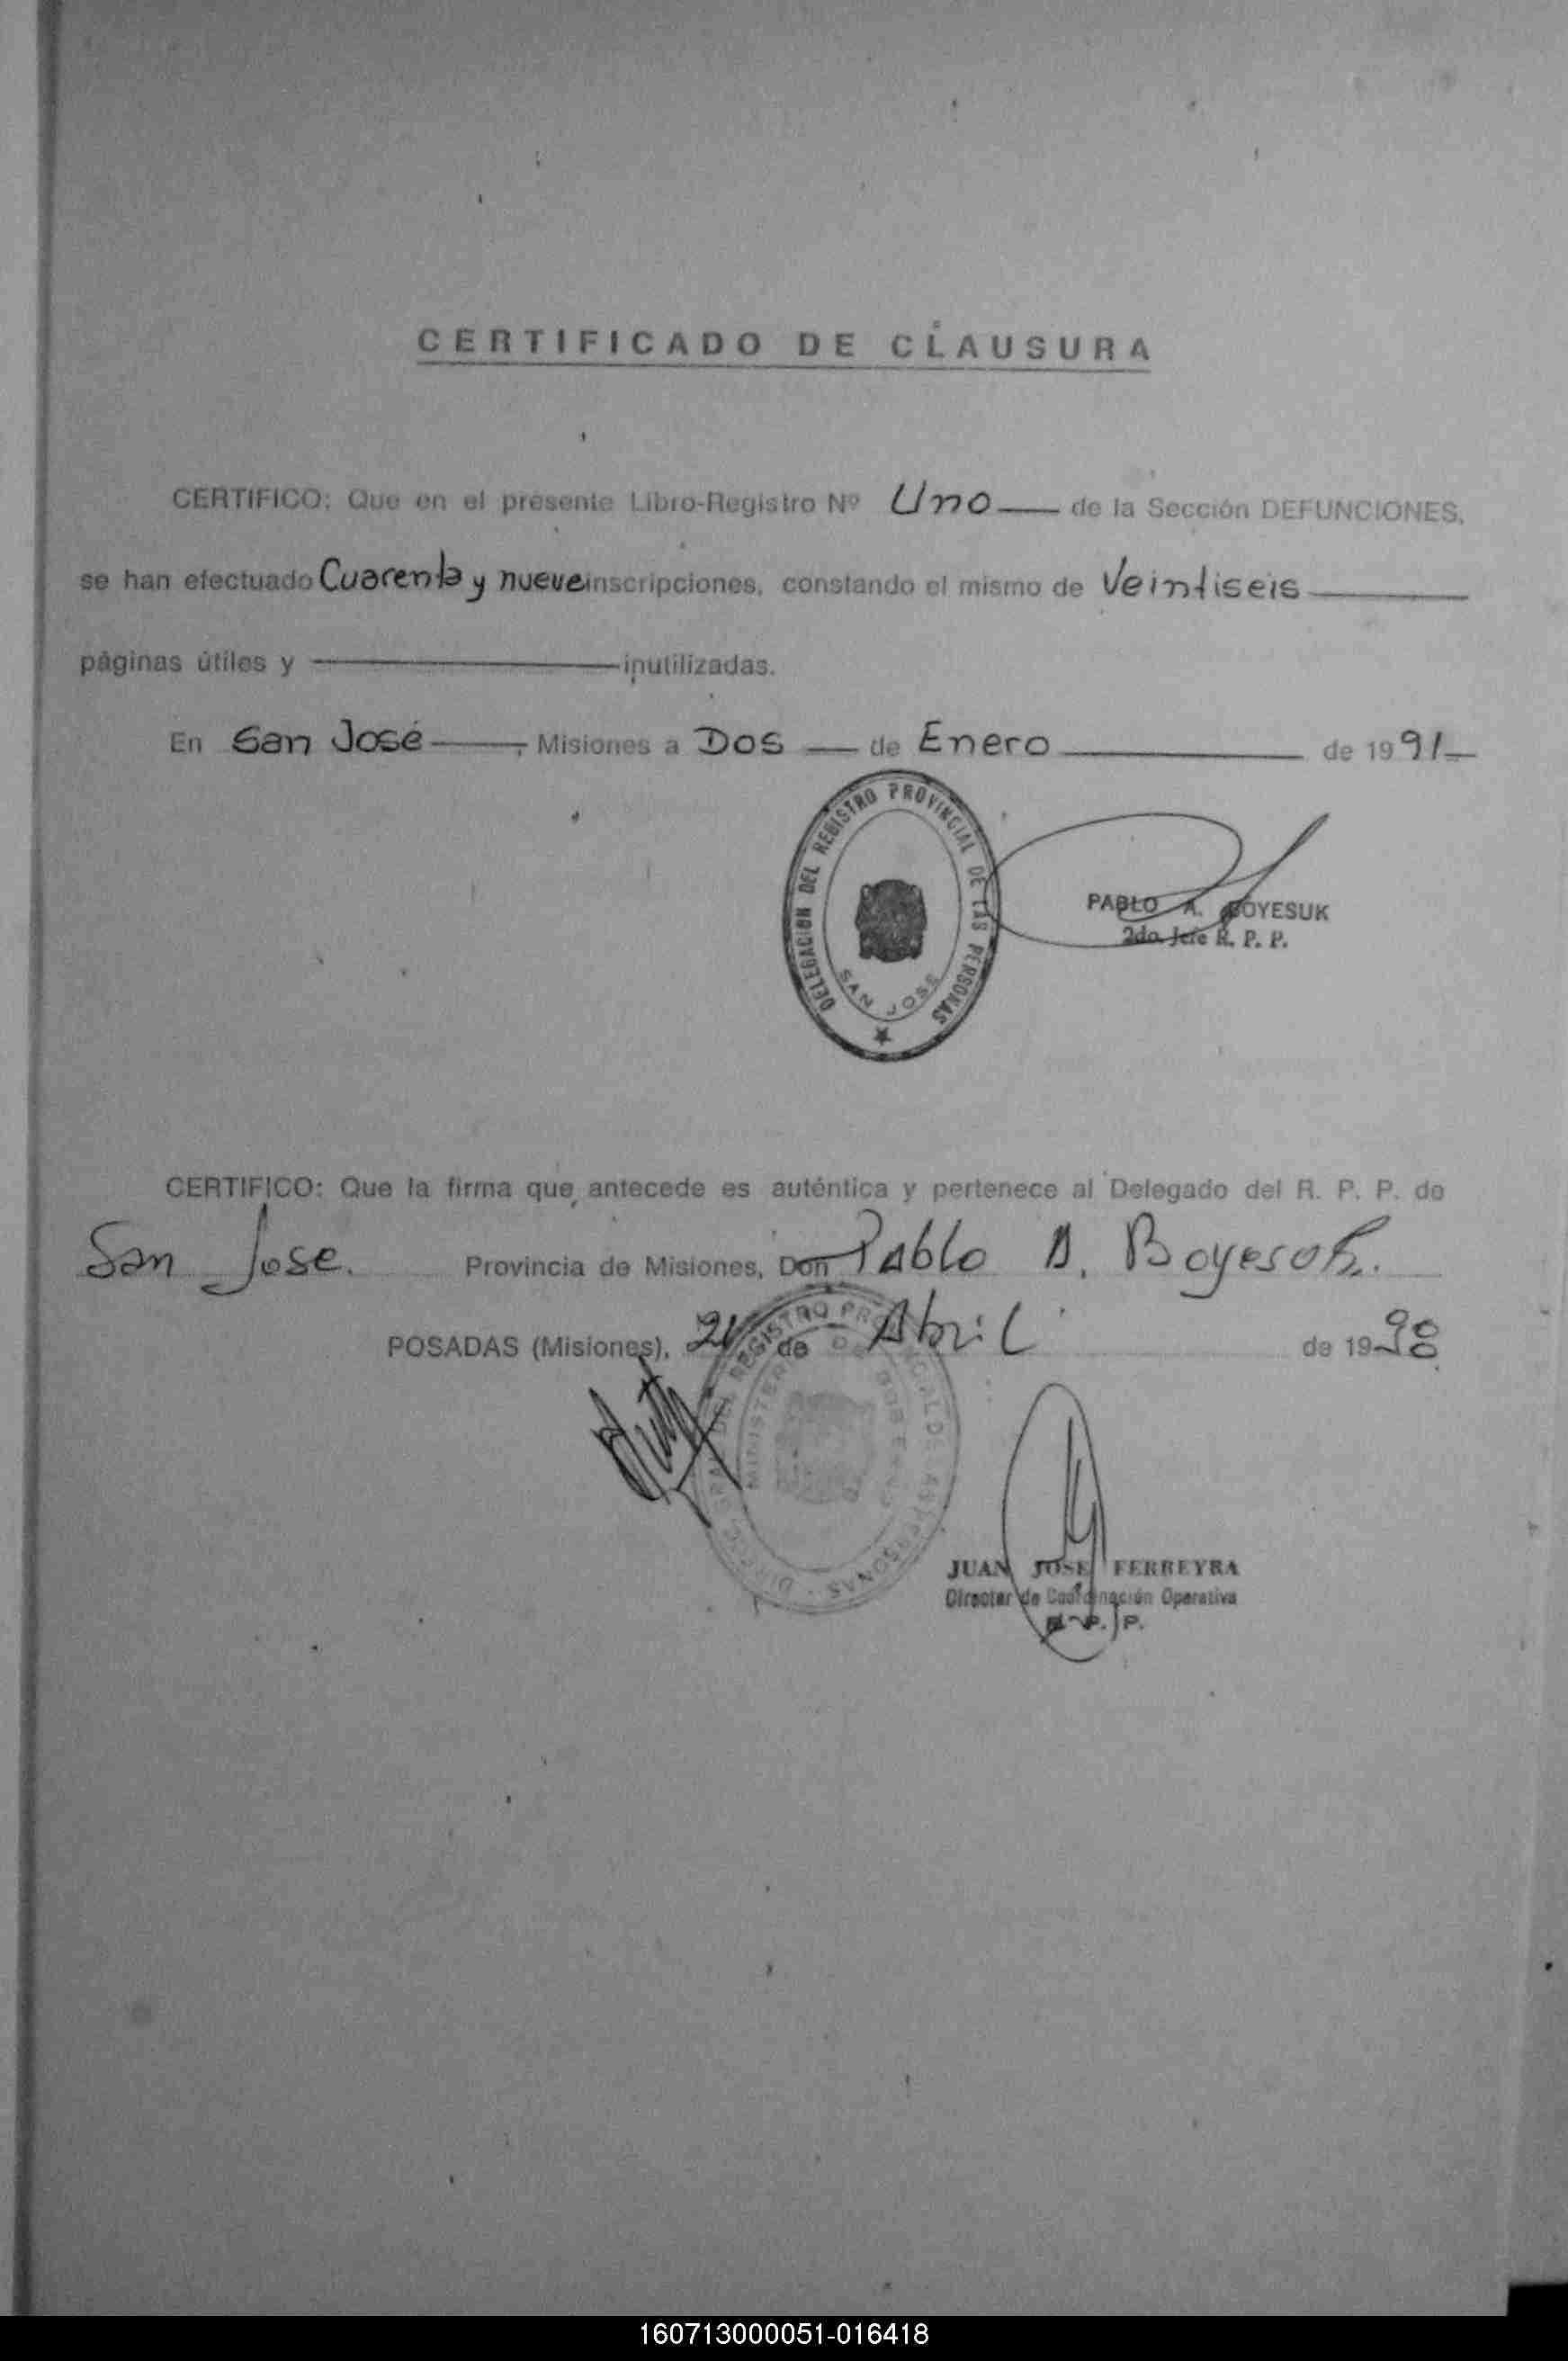 CERTIFICADO DE CLAUSURA
CERTIFICO: Que en el presente Libro-Registro Nº Uno de la Sección DEFUNCIONES,
se han efectuado Cuarenta y nueve inscripciones, constando el mismo de Veintiseis
páginas útiles y inutilizadas.
En San José, Misiones a Dos de Enero de 1991
DELEGACION DEL REGISTRO PROVINCIAL DE LAS PERSONAS
SAN JOSE
PABLO A. BOYESUK
2do. Jefe R. P. P.
CERTIFICO: Que la firma que antecede es auténtica y pertenece al Delegado del R. P. P. de
San Jose. Provincia de Misiones, Don Pablo A. Boyesuk.
POSADAS (Misiones), de Abril de 1998
REGISTRO PROVINCIAL DE LAS PERSONAS
MINISTERIO DE GOBIERNO
JUAN JOSE FERREYRA
Director de Coordinación Operativa
R. P. P.
160713000051-016418